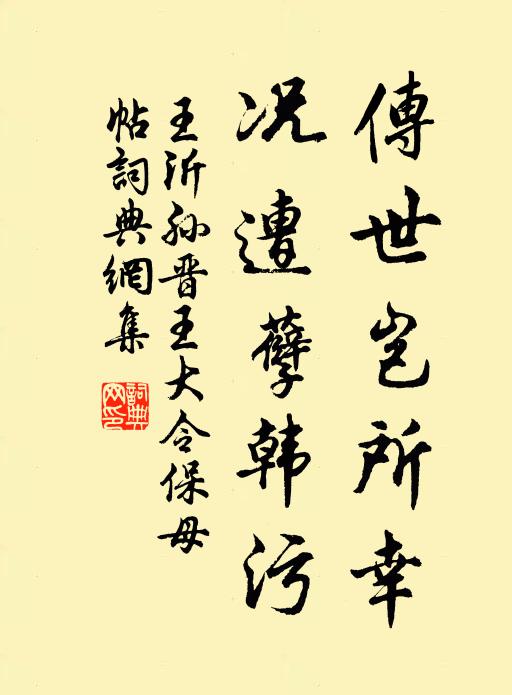 傳世豈所幸
况遭孽韩污
王沂孙晋王大令保母
帖詞典網集
詞典網印